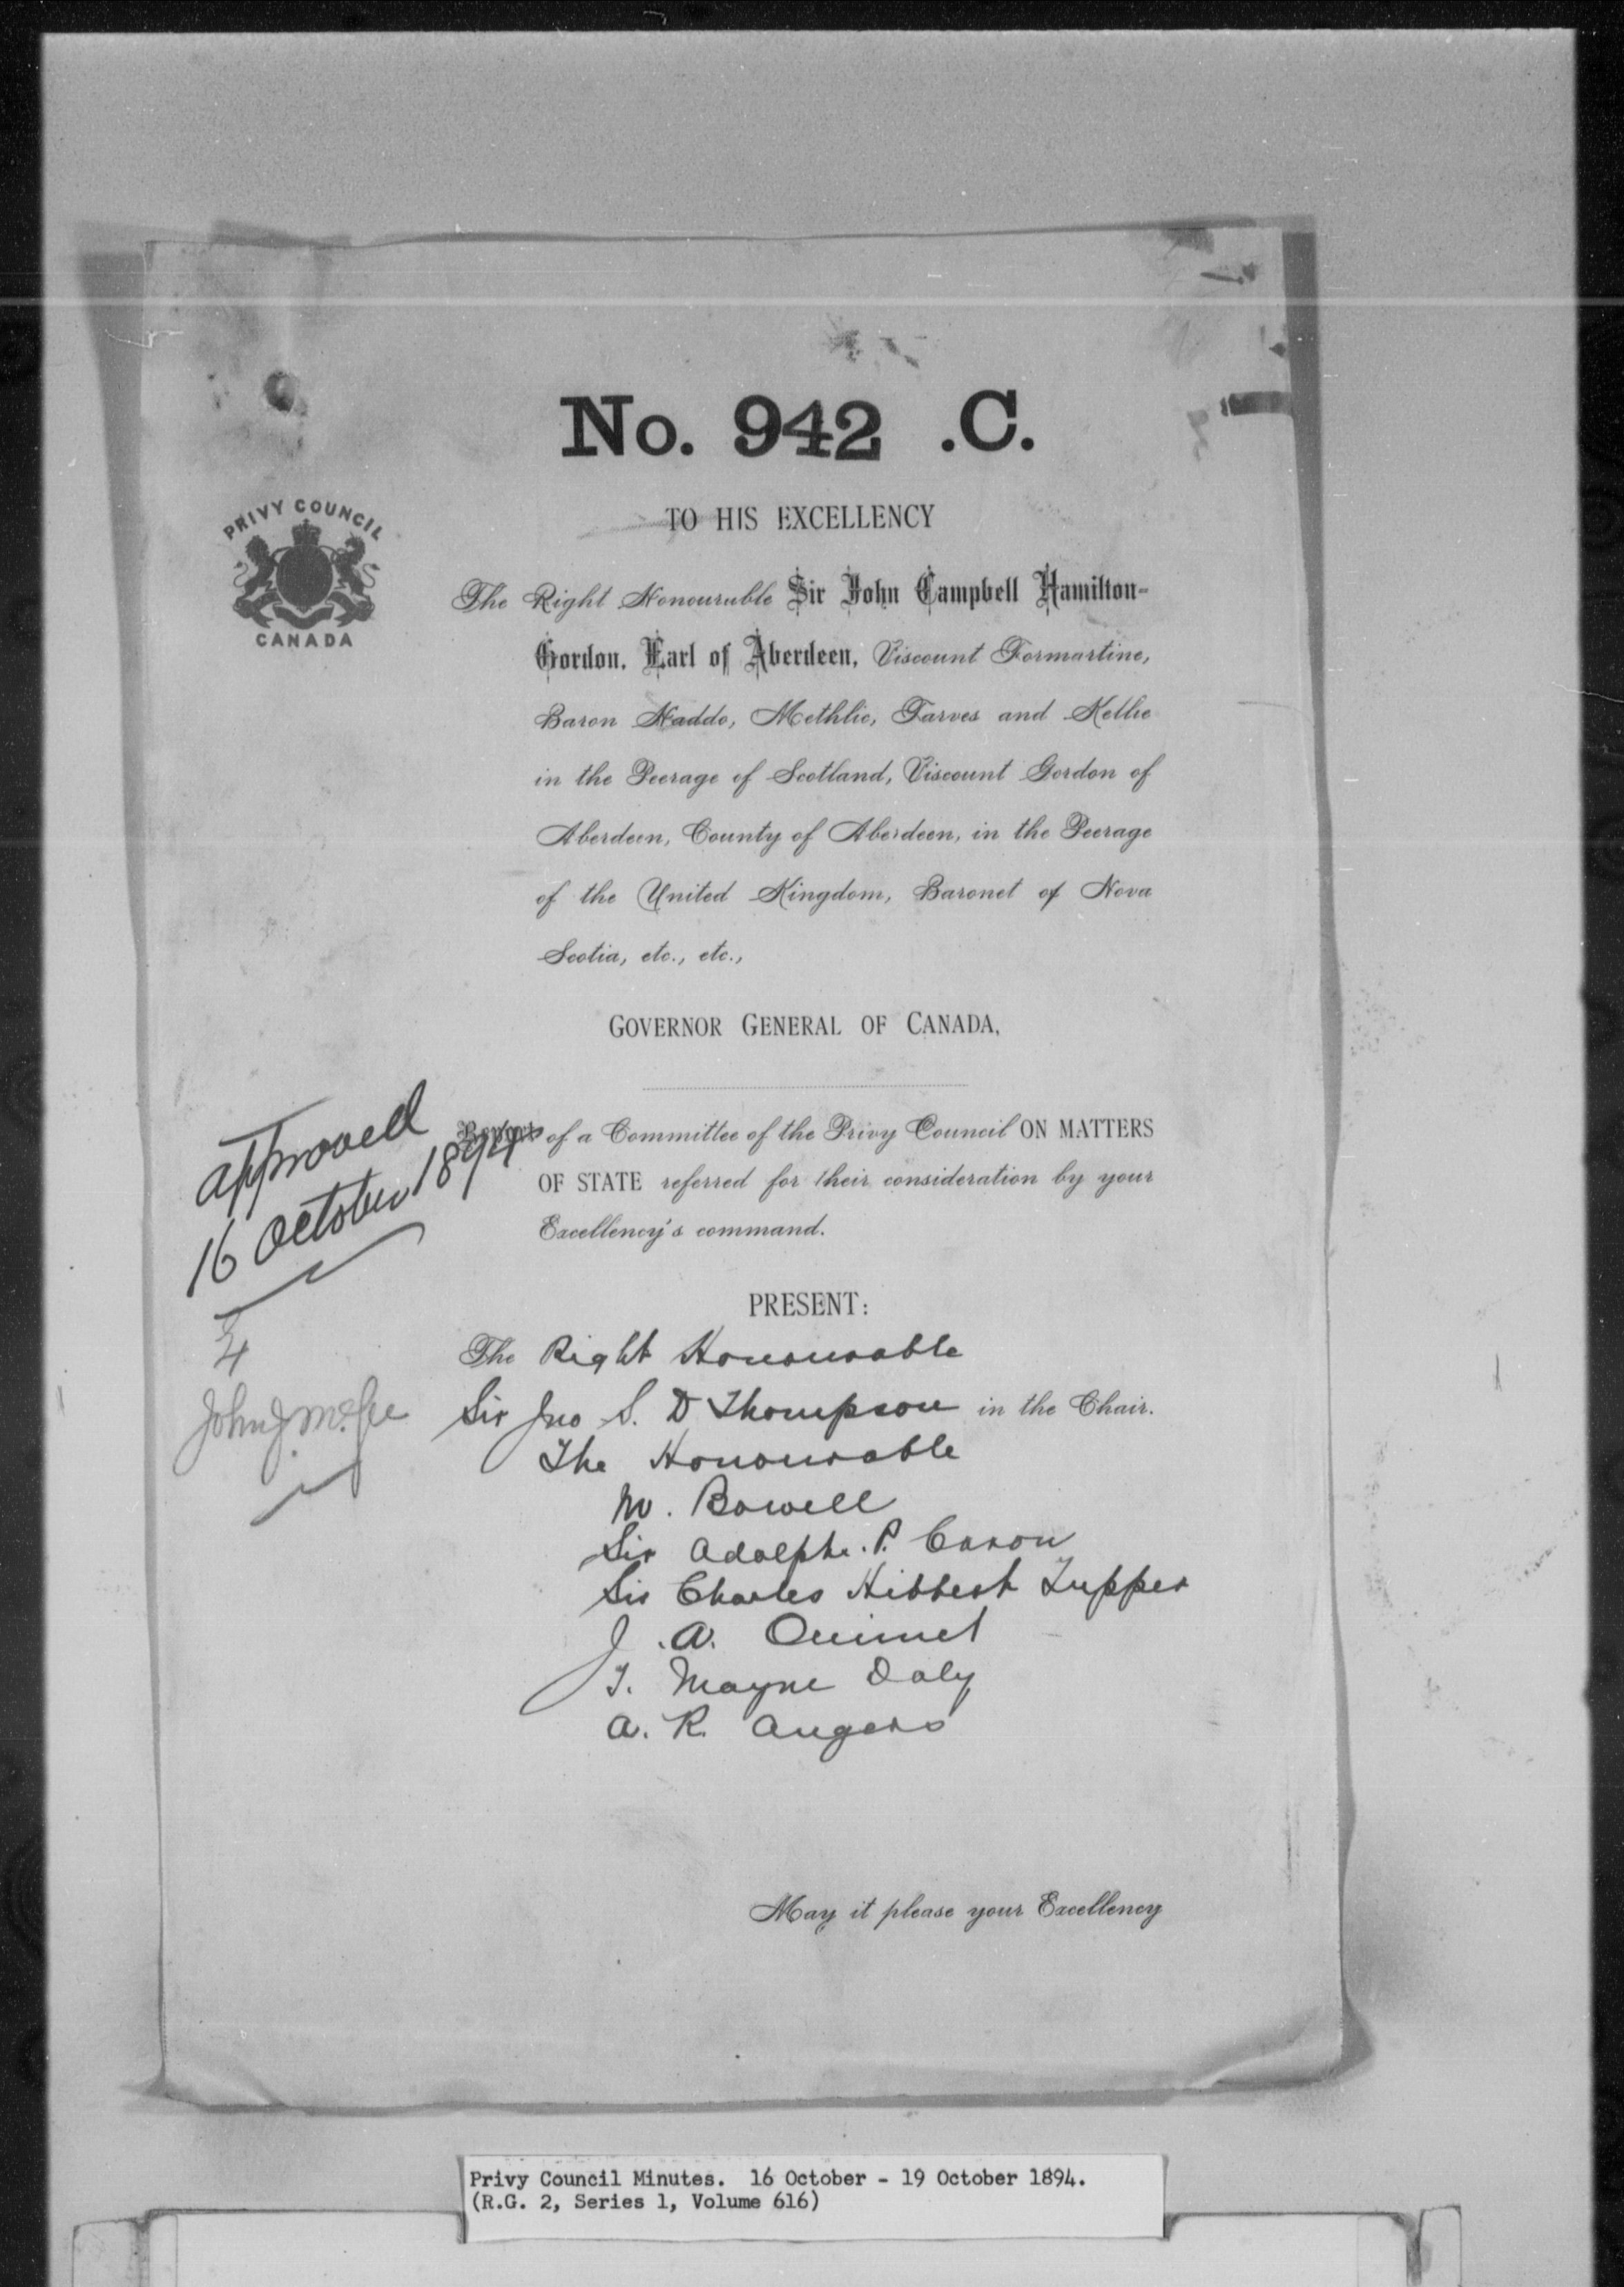 No. 942 .C.
PRIVY COUNCIL
CANADA
TO HIS EXCELLENCY
The Right Honourable Sir John Campbell Hamilton-
Gordon, Earl of Aberdeen, Viscount Formartine,
Baron Haddo, Methlic, Tarves and Kellie
in the Peerage of Scotland, Viscount Gordon of
Aberdeen, County of Aberdeen, in the Peerage
of the United Kingdom, Baronet of Nova
Scotia, etc., etc.,
GOVERNOR GENERAL OF CANADA,
approved
16 October 1894
Report of a Committee of the Privy Council ON MATTERS
OF STATE referred for their consideration by your
Excellency's command.
PRESENT:
The Right Honourable
John J. McGee
Sir Jno S. D Thompson in the Chair.
The Honourable
M. Bowell
Sir Adolphe. P. Caron
Sir Charles Hibbert Tupper
J. A. Ouimet
T. Mayne Daly
A. R. Angers
May it please your Excellency
Privy Council Minutes. 16 October - 19 October 1894.
(R.G. 2, Series 1, Volume 616)